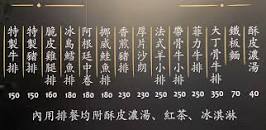 酥皮濃湯 40
鐵板麵 70
大丁骨牛排
菲力牛排
帶骨牛小排
法式羊小排
厚片沙朗
香煎豬排
挪威鮭魚排 180
阿根廷中卷 180
冰島鱈魚排 160
脆皮雞腿排 160
特製豬排 150
特製牛排 150
內用排餐均附酥皮濃湯、紅茶、冰淇淋